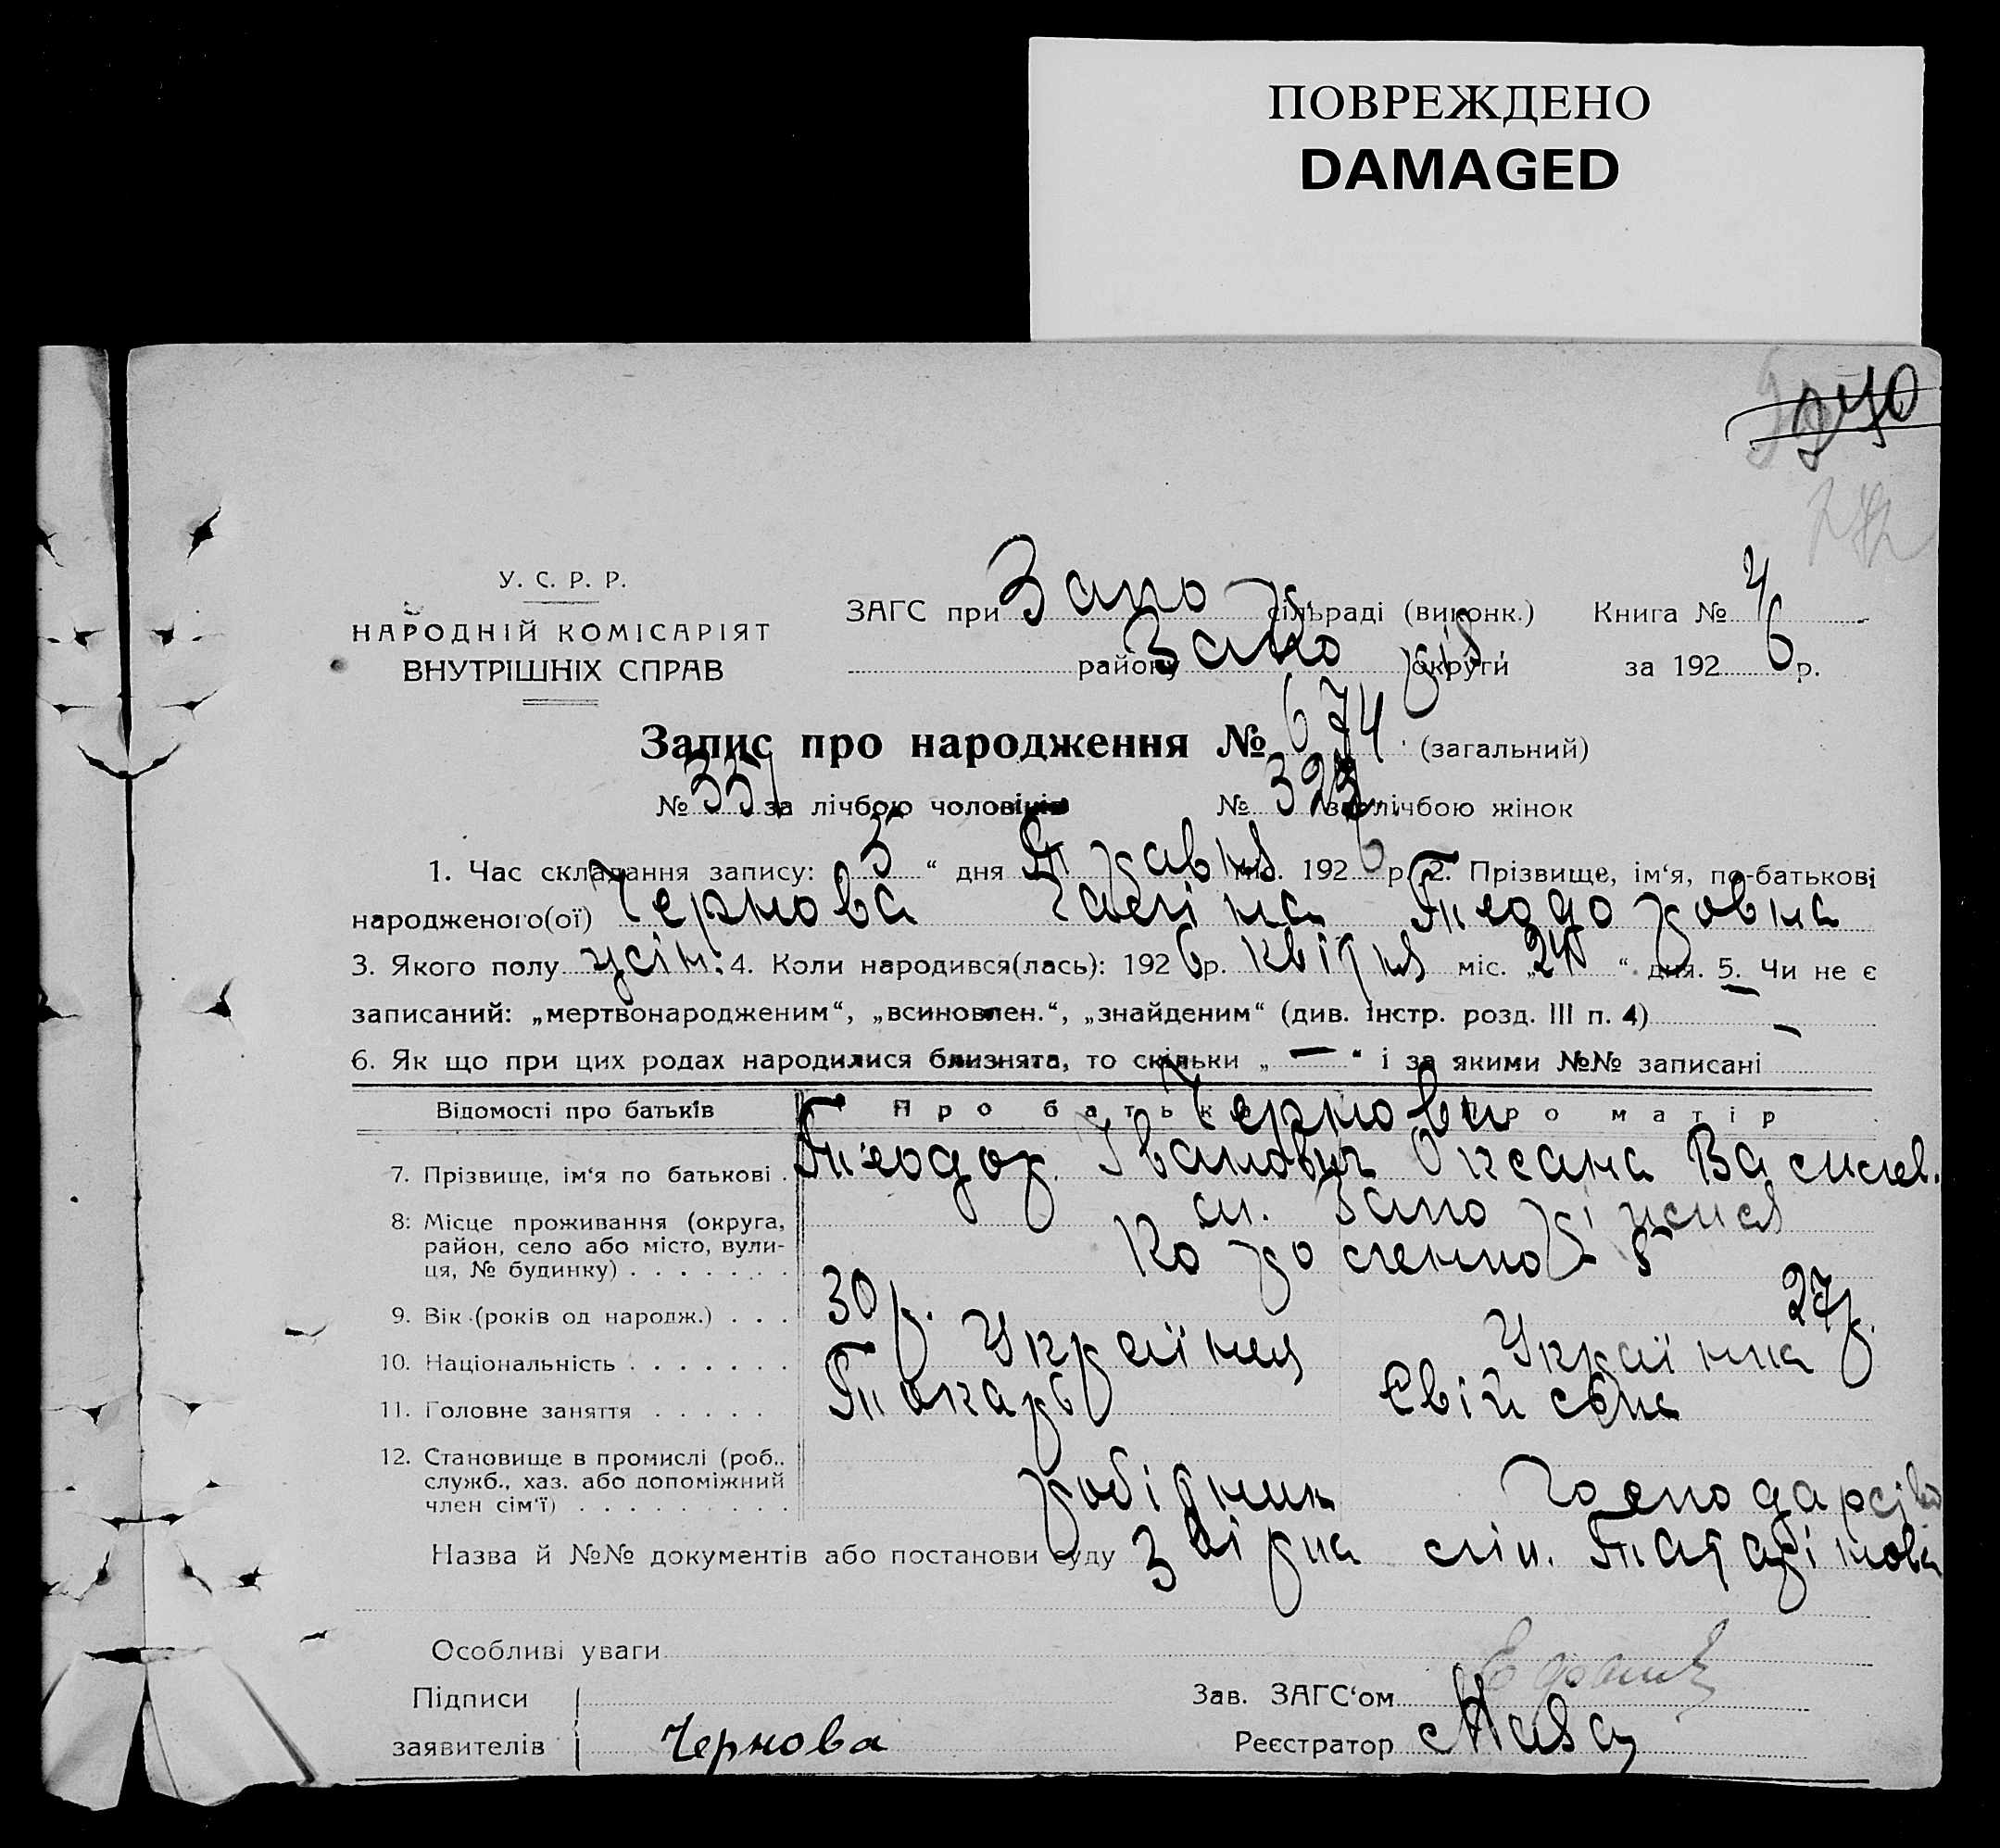 ПОВРЕЖДЕНО
DAMAGED
У. С. Р. Р.
НАРОДНІЙ КОМІСАРІЯТ
ВНУТРІШНІХ СПРАВ
ЗАГС при Запо сільраді (виконк.) Книга № 4
району Запо округи за 192 6 р.
Запис про народження № 674 (загальний)
№ 351 за лічбою чоловіків № 323 за лічбою жінок
1. Час складання запису: 5 “ дня Травня міс. 192 6 р. 2. Прізвище, ім‘я, по-батькові
народженого(ої) Чернова Галіна Теодоровна
3. Якого полу жін. 4. Коли народився(лась): 192 6 р. квітня міс. „ 24 “ дня. 5. Чи не є
записаний: „мертвонародженим“, „всиновлен.“, „знайденим“ (див. Інстр. розд. III п. 4) —
6. Як що при цих родах народилися близнята, то скільки „ — “ і за якими №№ записані
Відомості про батьків Про батька Про матір
Чернови
7. Прізвище, ім‘я по батькові . Теодор Іванович Оксана Василев.
8: Місце проживання (округа,
район, село або місто, вули-
ця, № будинку) . . . . . . .
м. Запоріжжя
9. Вік (років од народж.) . . . 30 р. 27 р.
10. Національність . . . . . . . Українец Українка
11. Головне заняття . . . . . Токарь
12. Становище в промислі (роб.,
служб., хаз. або допоміжний
член сім‘ї) . . . . . . . . .
робідник господарств
Назва й №№ документів або постанови суду
Особливі уваги
Підписи
заявителів Чернова
Зав. ЗАГС‘ом
Реєстратор